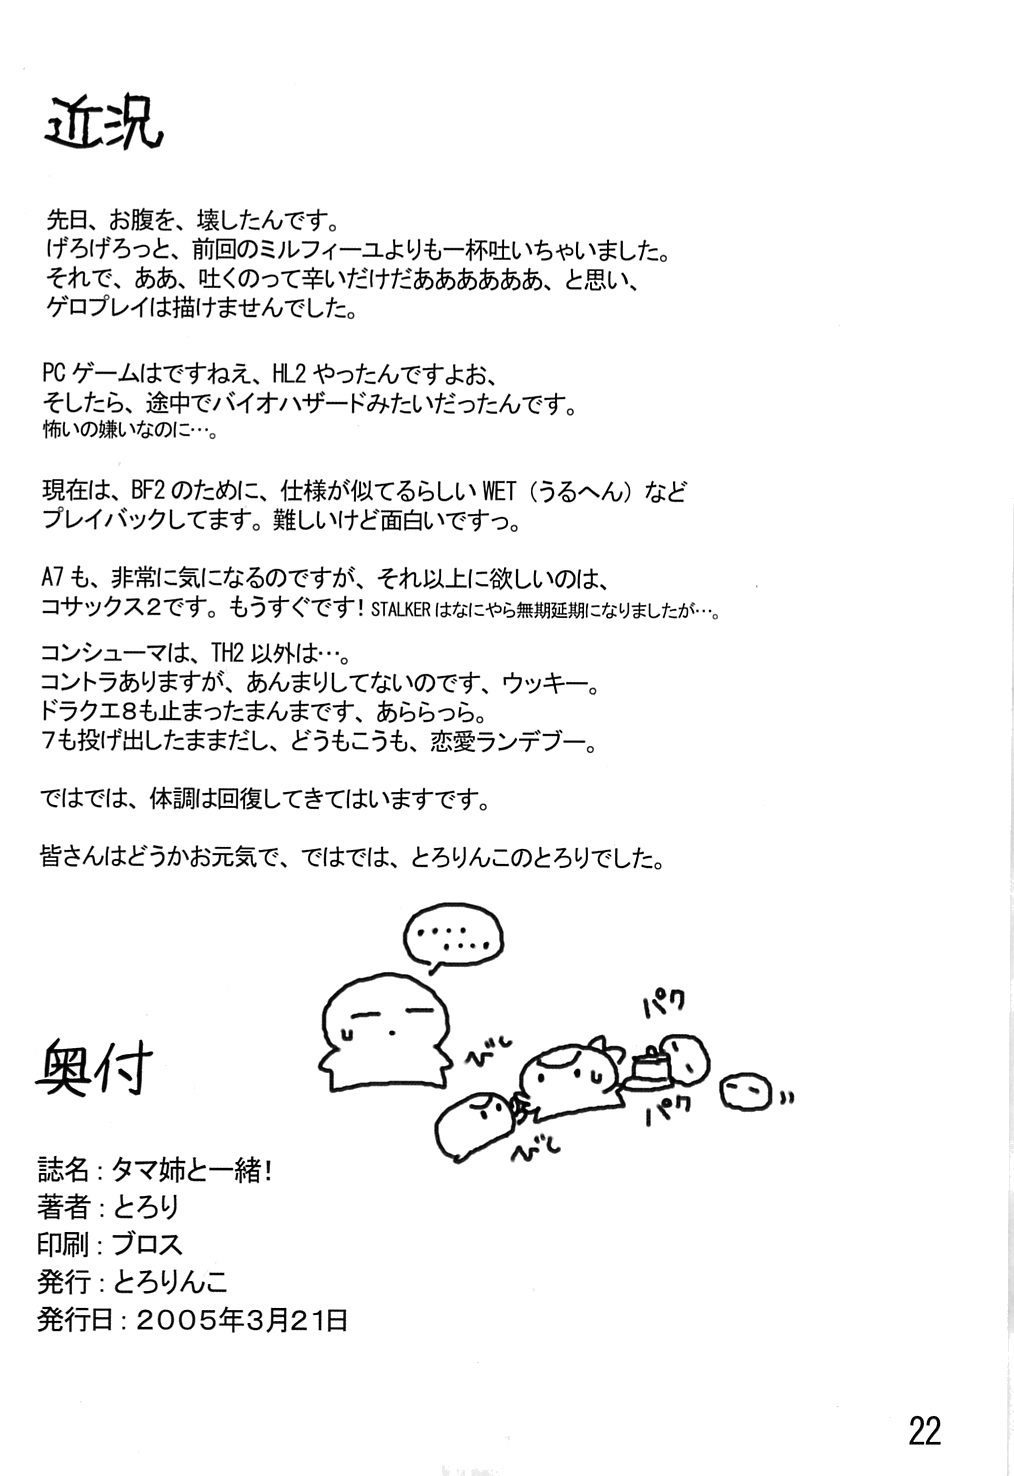 近況
先日、お腹を、壊したんです。
げろげろっと、前回のミルフィーユよりも一杯吐いちゃいました。
それで、ああ、吐くのって辛いだけだああああああ、と思い、
ゲロプレイは描けませんでした。
PCゲームはですねえ、HL2やったんですよお、
そしたら、途中でバイオハザードみたいだったんです。
怖いの嫌いなのに…。
現在は、BF2のために、仕様が似てるらしいWET（うるへん）など
プレイバックしてます。難しいけど面白いですっ。
A7も、非常に気になるのですが、それ以上に欲しいのは、
コサックス２です。もうすぐです！STALKERはなにやら無期延期になりましたが…。
コンシューマは、TH2以外は…。
コントラありますが、あんまりしてないのです、ウッキー。
ドラクエ８も止まったまんまです、あららっら。
７も投げ出したままだし、どうもこうも、恋愛ランデブー。
ではでは、体調は回復してきてはいますです。
皆さんはどうかお元気で、ではでは、とろりんこのとろりでした。
‥‥
‥‥
パク
べし
パク
べし
奥付
誌名：タマ姉と一緒！
著者：とろり
印刷：ブロス
発行：とろりんこ
発行日：２００５年３月２１日
22